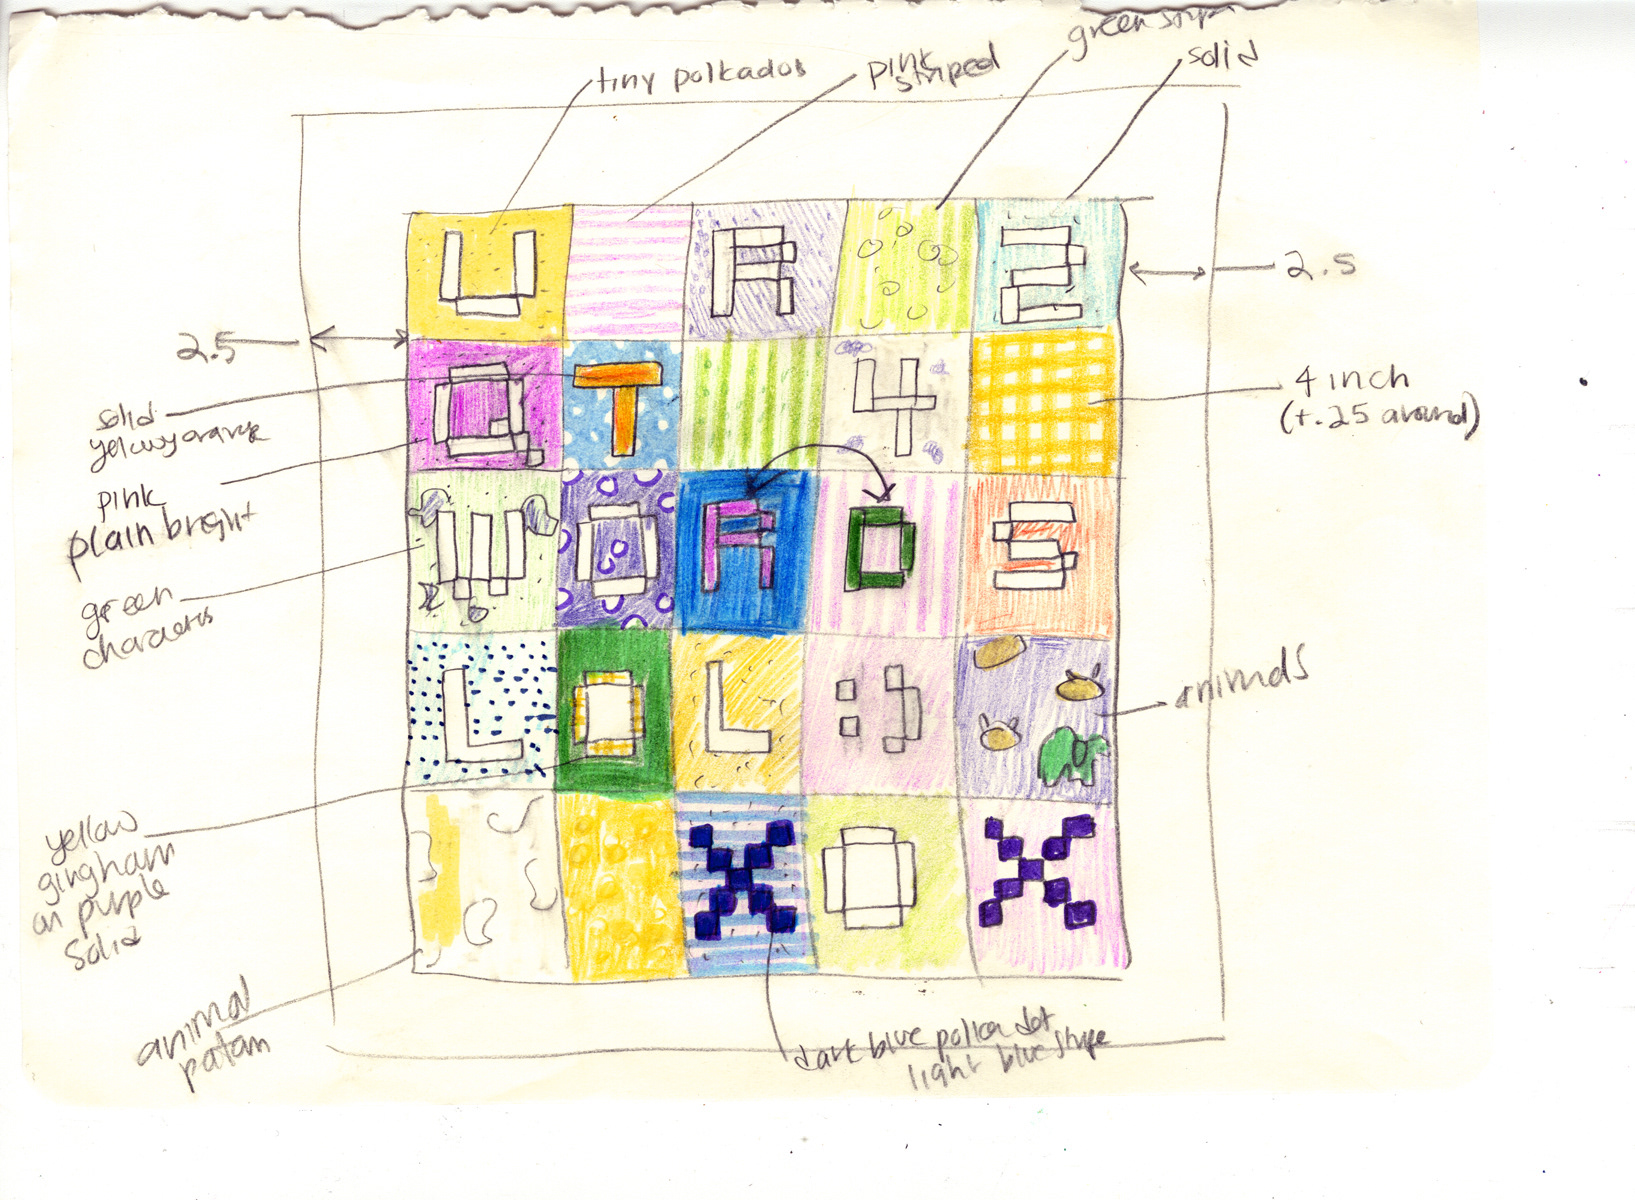 tiny polkadots
pink
striped
green stripe
solid
U R 2
2.5
2.5
Q T 4
4 inch
(+.25 around)
solid
yellowy orange
pink
plain bright
W O R D S
green
characters
L O L :)
animals
yellow
gingham
on purple
solid
X O X
animal
pattern
dark blue polka dot
light blue stripe